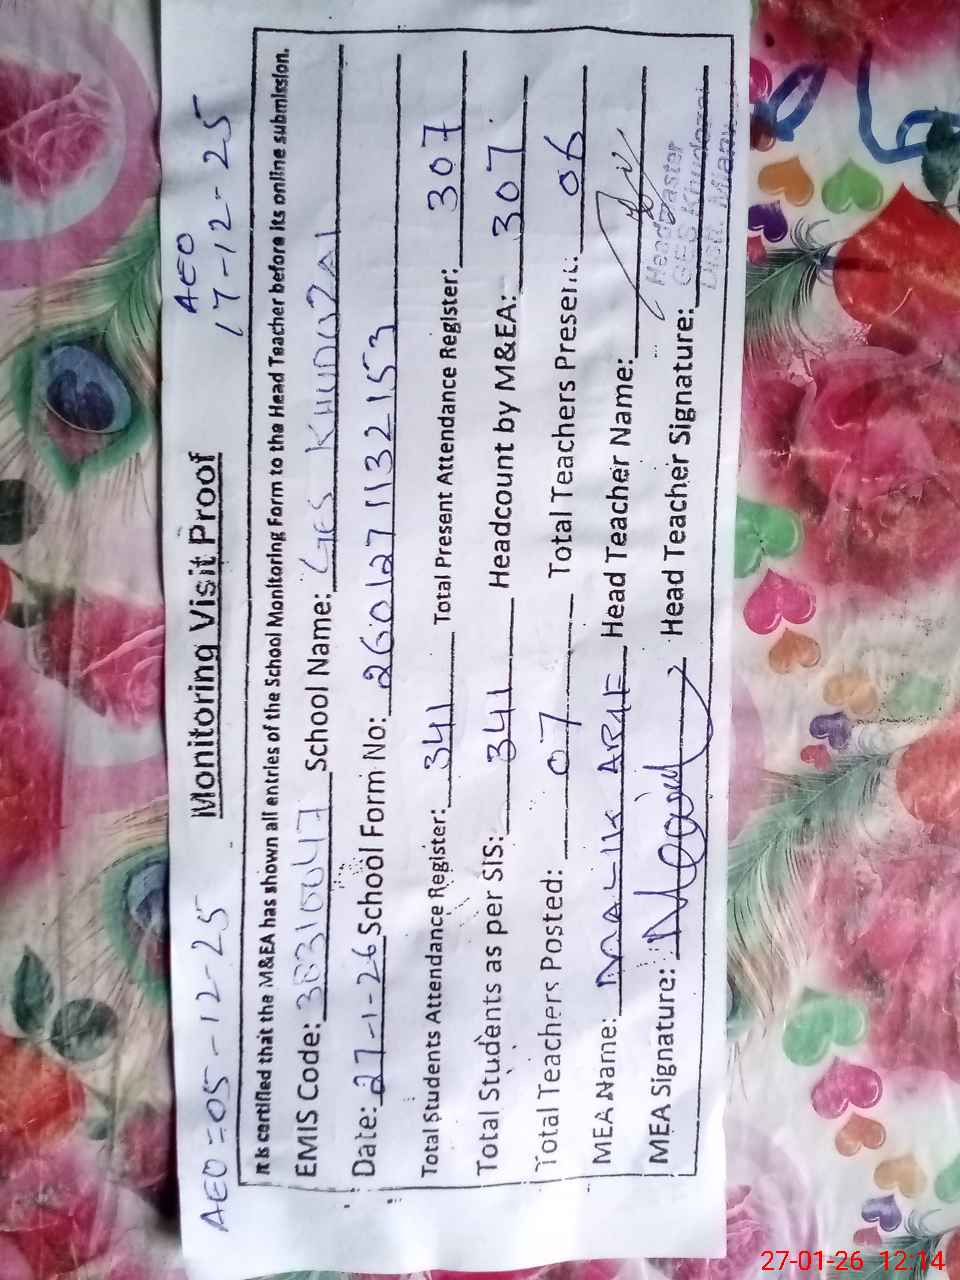 AEO = 05-12-25
AEO
17-12-25
Monitoring Visit Proof
It is certified that the M&EA has shown all entries of the School Monitoring Form to the Head Teacher before its online submission.
EMIS Code: 38310047 School Name: GES KHUDOZAI
Date: 27-1-26 School Form No: 260127113215
Total Students Attendance Register: 341 Total Present Attendance Register: 307
Total Students as per SIS: 341 Headcount by M&EA: 307
Total Teachers Posted: 07 Total Teachers Present: 06
MEA Name: MALIK ARIF Head Teacher Name:
MEA Signature: Head Teacher Signature:
Head Master
GES
Distt. Mianw
27-01-26 12:14